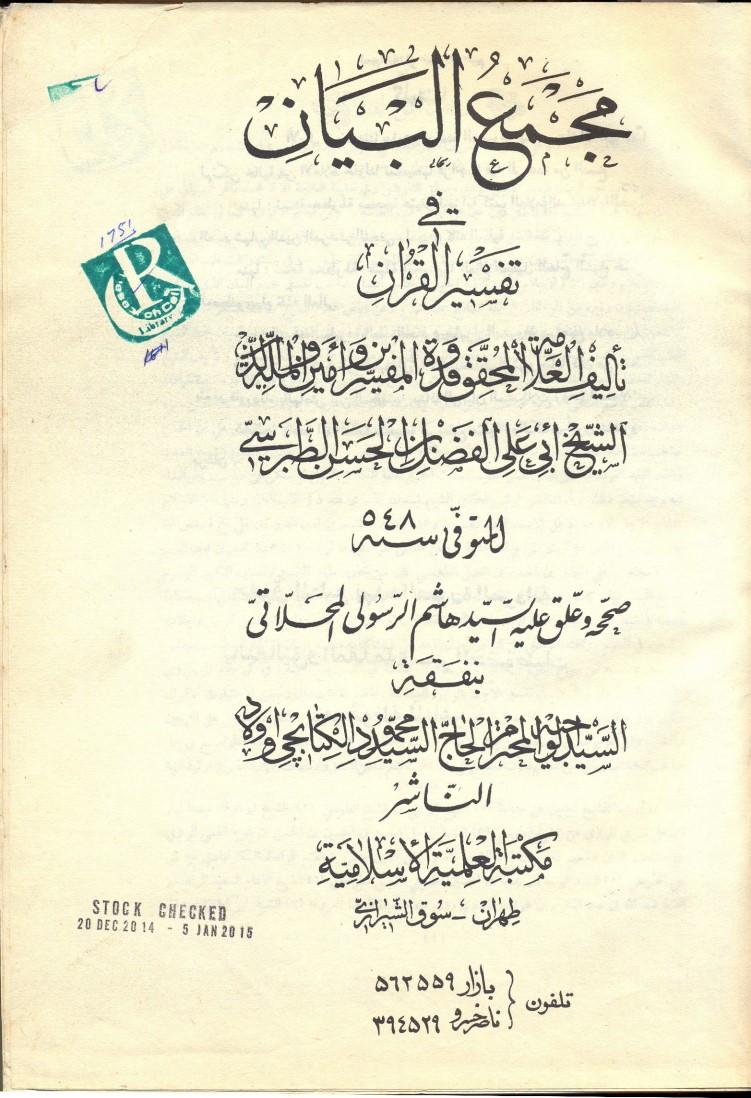 مجمع البيان
في
تفسير القرآن
تأليف العلامة المحقق قدوة المفسرين وأمين الملة والدين
الشيخ أبي علي الفضل بن الحسن الطبرسي
المتوفى سنة ٥٤٨
صححه و علق عليه السيد هاشم الرسولي المحلاتي
بنفقة
السيد جواد وأخويه المحترم الحاج السيد محمود الكتابچي
الناشر
مكتبة العلمية الإسلامية
طهران - سوق الشيرازي
تلفون
بازار ۵۶۲۵۵۹
ناصرخسرو ۳۹۴۵۲۹
1751
R
Research Cell
Library
STOCK CHECKED
20 DEC 2014 - 5 JAN 2015